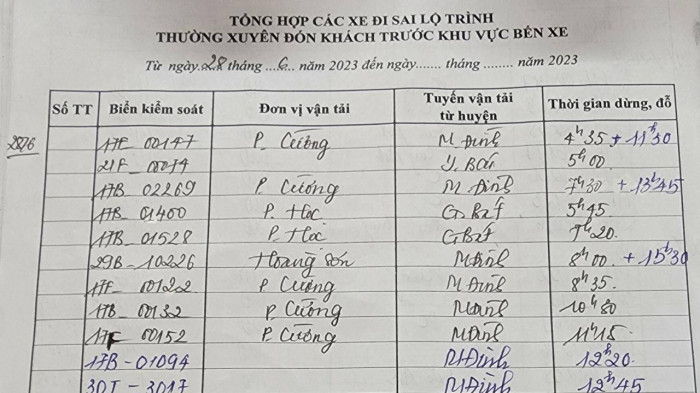 TỔNG HỢP CÁC XE ĐI SAI LỘ TRÌNH
THƯỜNG XUYÊN ĐÓN KHÁCH TRƯỚC KHU VỰC BẾN XE
Từ ngày 28 tháng ...6... năm 2023 đến ngày....... tháng ........ năm 2023
Số TT Biển kiểm soát Đơn vị vận tải Tuyến vận tải từ huyện Thời gian dừng, đỗ
17F 00147 P. Cường M. Đình 4h35 + 11h30
00014 5h00
17B 02269 P. Cường M. Đình 7h30 + 13h45
17B 01400 P. Học G. Bát 5h45
17B 01528 P. Học G. Bát 7h20
29B-10226 Hoàng Sơn M. Đình 8h00 + 15h30
17F 01222 P. Cường M. Đình 8h35
17B 00132 P. Cường M. Đình 10h30
17F 00152 P. Cường M. Đình 11h15
17B-01094 M. Đình 12h20
M. Đình 12h45